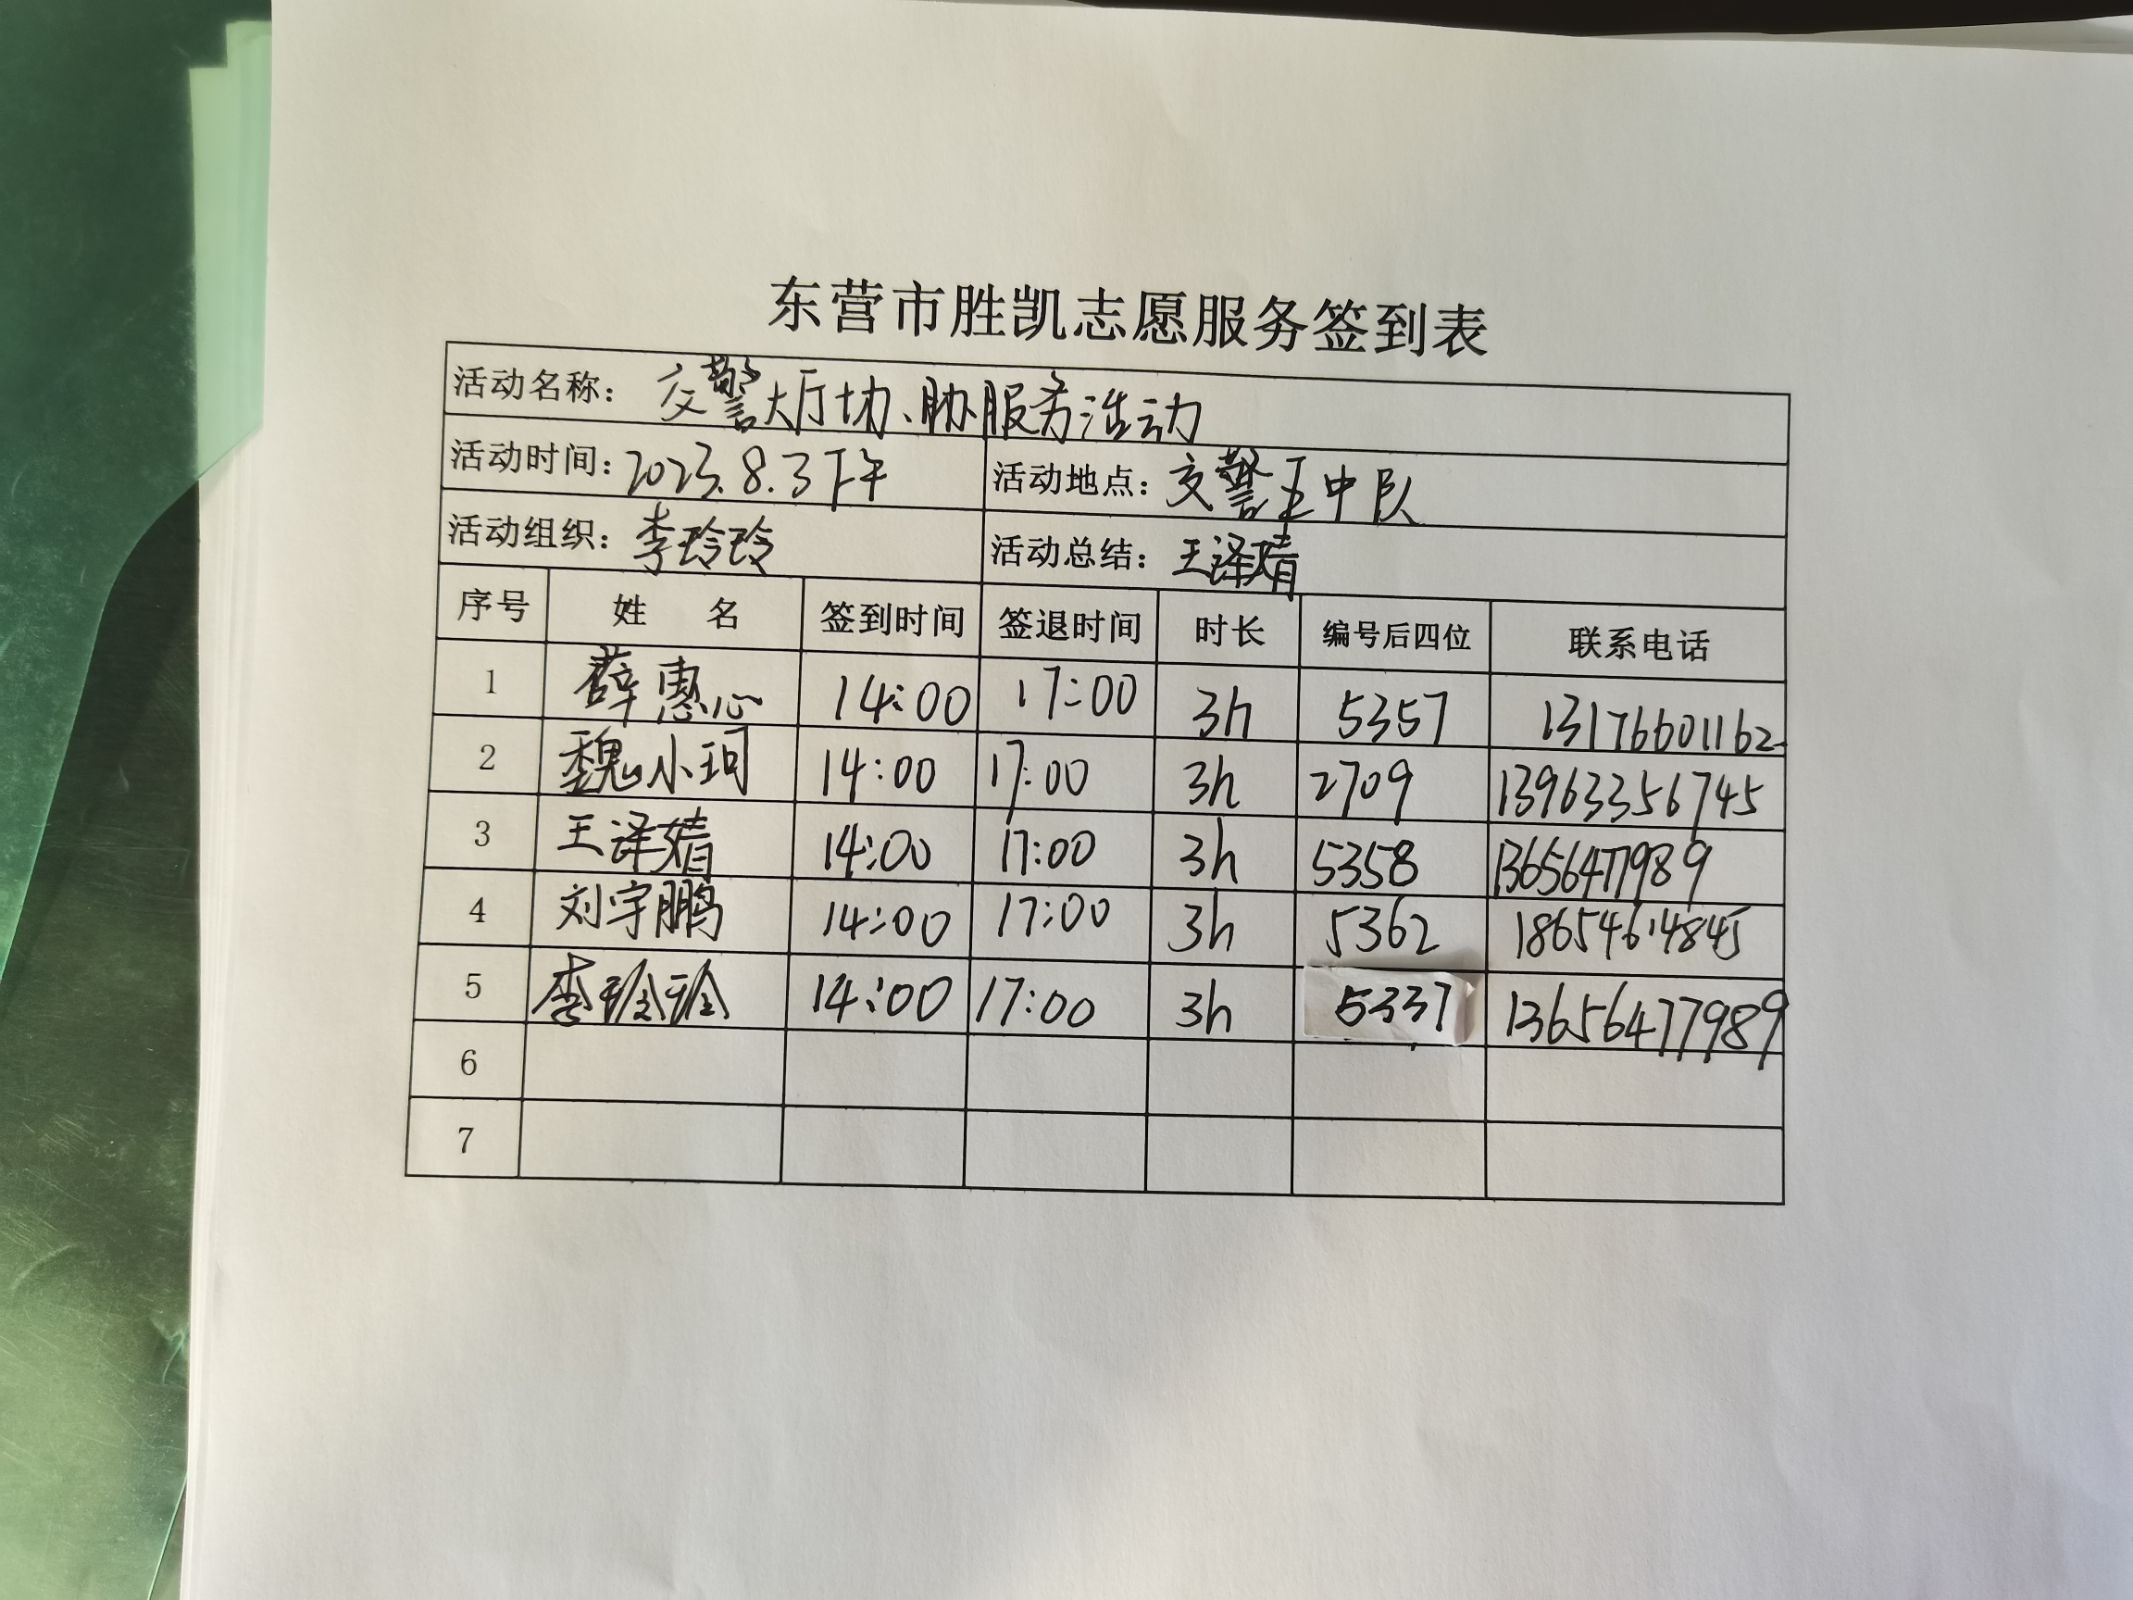 东营市胜凯志愿服务签到表
活动名称: 交警大厅协、助服务活动
活动时间: 2023.8.3下午 活动地点: 交警五中队
活动组织: 李玲玲 活动总结: 王译婧
序号 姓 名 签到时间 签退时间 时长 编号后四位 联系电话
1 薛惠心 14:00 17:00 3h 5357 13176601162
2 魏小珂 14:00 17:00 3h 2709 13963356745
3 王译婧 14:00 17:00 3h 5358 13656477989
4 刘宇鹏 14:00 17:00 3h 5362
5 李玲玲 14:00 17:00 3h 5337 13656477989
6
7